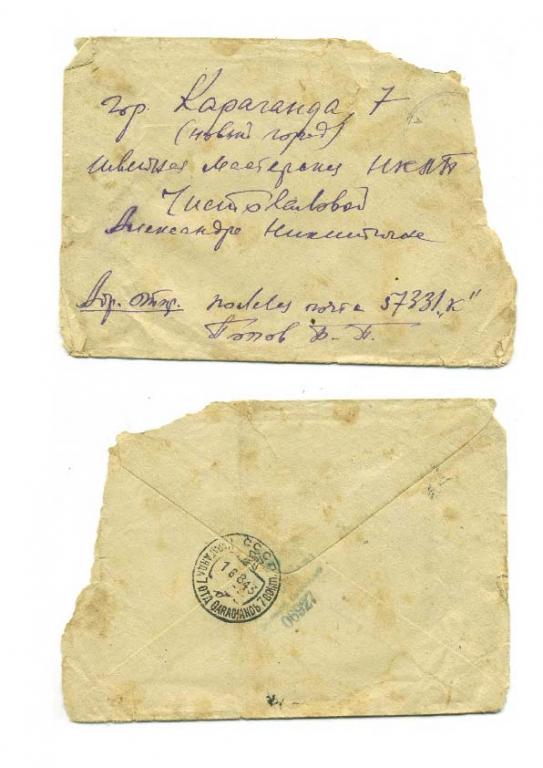 гор. Караганда 7
(новый город)
швейная мастерская НКПП
Чистохваловой
Александре Никитичне
Адр. отпр. полевая почта 57331 „К"
Попов В. П.
СССР
GARAGANDЬ 7
06927